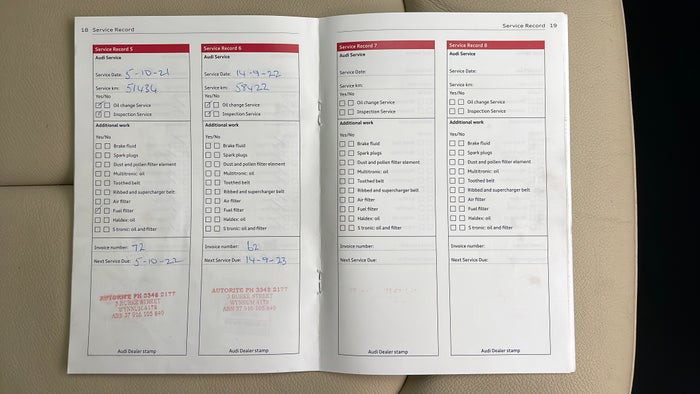 18 Service Record
Service Record 5
Audi Service
Service Date: 5-10-21
Service km: 51434
Yes/No
Oil change Service
Inspection Service
Additional work
Yes/No
Brake fluid
Spark plugs
Dust and pollen filter element
Multitronic: oil
Toothed belt
Ribbed and supercharger belt
Air filter
Fuel filter
Haldex: oil
S tronic: oil and filter
Invoice number: 72
Next Service Due: 5-10-22
AUTORITE PH 3348 2177
3 BURKE STREET
WYNNUM 4178
ABN 37 916 105 849
Audi Dealer stamp
Service Record 6
Audi Service
Service Date: 14-9-22
Service km: 58422
Yes/No
Oil change Service
Inspection Service
Additional work
Yes/No
Brake fluid
Spark plugs
Dust and pollen filter element
Multitronic: oil
Toothed belt
Ribbed and supercharger belt
Air filter
Fuel filter
Haldex: oil
S tronic: oil and filter
Invoice number: 62
Next Service Due: 14-9-23
AUTORITE PH 3348 2177
3 BURKE STREET
WYNNUM 4178
ABN 37 916 105 849
Audi Dealer stamp
Service Record 19
Service Record 7
Audi Service
Service Date:
Service km:
Yes/No
Oil change Service
Inspection Service
Additional work
Yes/No
Brake fluid
Spark plugs
Dust and pollen filter element
Multitronic: oil
Toothed belt
Ribbed and supercharger belt
Air filter
Fuel filter
Haldex: oil
S tronic: oil and filter
Invoice number:
Next Service Due:
Audi Dealer stamp
Service Record 8
Audi Service
Service Date:
Service km:
Yes/No
Oil change Service
Inspection Service
Additional work
Yes/No
Brake fluid
Spark plugs
Dust and pollen filter element
Multitronic: oil
Toothed belt
Ribbed and supercharger belt
Air filter
Fuel filter
Haldex: oil
S tronic: oil and filter
Invoice number:
Next Service Due:
Audi Dealer stamp